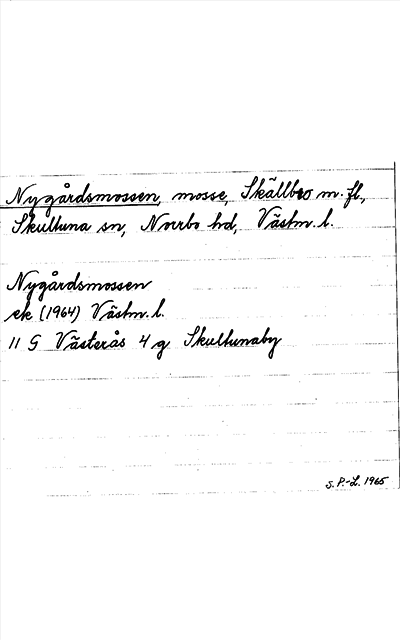 Nygårdsmossen, mosse, Skällbo m. fl.,
Skultuna sn, Norrbo hd, Västm. l.
Nygårdsmossen
ek (1964) Västm. l.
11 G Västerås 4 g Skultunaby
S. P.-L. 1965